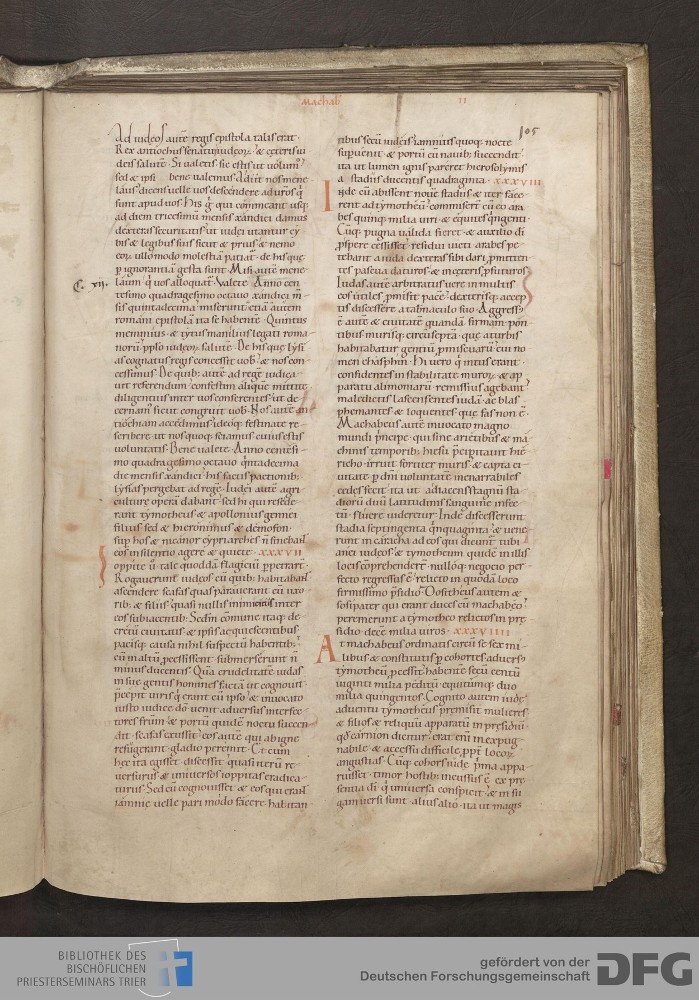 Machab II
105
Ad iudeos autē regis epistola talis erat.
Rex antiochus senatui iudeoꝝ & ceteris iu
deis salutē. Si ualetis. sic estis ut uolum᷒.
sed & ipsi bene ualemus. Adiit nos mene
laus. dicens uelle uos descendere ad ur̄os q̄
sunt apud nos. His g̅ qui cōmeant usq;
ad diem tricesimū mensis xandici damus
dexteras securitatis. ut iudei utantur cy
bis & legibus suis sicut & prius. & nemo
eoꝝ ullo modo molestiā patiat᷒ de his que
ꝑ ignorantiā gesta sunt. Misim᷒ autē mene
C. xii.
laum q̄ uos alloquat᷒. Valete. Anno cen
tesimo quadragesimo octauo xandici m̄
sis quintadecima. miserunt etiā autem
romani epistolā ita se habentē. Quintus
memmius & tytus manilius legati roma
norū. ꝑplo iudeoꝝ salutē. De his que lysi
as cognatus regis concessit uob̄ & nos con
cessimus. De quib; autē ad regē iudica
uit referendum. confestim aliquē mittite.
diligentius inter uos conferentes. ut de
cernam᷒ sicut congruit uob̄. Nos autē an
tiochiam accedimus. ideoq; festinate re
scribere. ut nos quoq; sciamus cuius estis
uoluntatis. Bene ualete. Anno centesi
mo quadragesimo octauo quintadecima
die mensis xandici. his factis pactionib;
lysias pergebat ad regē. Iudei autē agri
culture operā dabant. sed hi qui resede
rant tymotheus & apollonius gennei
filius. sed & hieronimus & demofon
sup hos & nicanor cypriarches n̄ sinebant
eos in silentio agere & quiete. xxxvii
Ioppite ū tale quoddā flagitiū ꝑpetrarī.
Rogauerunt iudeos cū quib; habitabant
ascendere scafas quas parauerant cū uxo
rib; & filiis. quasi nullis inimiciciis inter
eos subiacentib;. Sedm̄ comune itaq; de
cretū ciuitatis & ipsis acquiescentibus
pacisq; causa nihil suspectū habentib;.
cū in altū ꝓcessissent submerserunt n̄
minus ducentis. Quā crudelitatē iudas
in sue gentis homines factā ut cognouit.
ꝓcepit uiris q̄ erant cū ipso. & inuocato
iusto iudice dō uenit aduersus interfec
tores fr̄um. & portū quidē noctu succen
dit. scafas exussit. eos autē qui ab igne
refugerant. gladio peremit. Et cum
hec ita egisset. discessit quasi iterū re
uersurus. & uniuersos ioppitas eradica
turus. Sed cū cognouisset & eos qui erant
iamnie. uelle pari modo facere habitan
tibus secū iudeis. iamnitis quoq; nocte
supuenit. & portū cū nauib; succendit.
ita ut lumen ignis pareret hierosolymis
a stadiis ducentis quadraginta. xxxviii
Inde cū abissent nouē stadiis & iter face
rent ad tymotheū. commiserī cū eo ara
bes quinq; milia uiri. & equites q̄ngenti.
Cūq; pugna ualida fieret & auxilio dī
ꝓspere cessisset. residui uicti arabes pe
tebant a iuda dexteras sibi dari. ꝓmitten
tes pascua daturos. & in ceteris ꝓfuturos.
Iudas autē arbitratus uere in multis
eos utiles. ꝓmisit pacē. dexterisq; accep
tis discessere a tabnaculo suo. Aggressus
ē autē & ciuitatē quandā firmam pon
tibus murisq; circūseptā. que a turbis
habitabatur gentiū ꝓmiscuarū. cui no
men chasphin. Hi uero q̄ intus erant
confidentes in stabilitate muroꝝ & ap
paratu alimoniarū. remissius agebant.
maledictis lacessentes iudā. ac blas
phemantes & loquentes que fas non ē.
Machabeus autē inuocato magno
mundi ꝓncipe. qui sine arietibus & ma
chinis temporib; hiesu ꝓcipitauit hie
richo. irruit ferociter muris. & capta ci
uitate ꝑ dn̄i uoluntatē inenarrabiles
cedes fecit. ita ut adiacens stagnū sta
dioꝝ duū latitudinis sanguine infec
tū fluere uideretur. Inde discesserunt
stadia septingenta q̄nquaginta. & uene
runt in caracha ad eos qui dicunt᷒ tubi
anei iudeos. & tymotheum quidē in illis
locis cōprehendere. nulloq; negocio per
fecto regressus ē. relicto in quodā loco
firmissimo ꝓsidio. Dositheus autem &
sosipater qui erant duces cū machabeo
peremerunt a tymotheo relictos in pre
sidio. decē milia uiros. xxxviiii
At machabeus ordinatis circū se sex mi
libus. & constitutis ꝑ cohortes. aduersus
tymotheū ꝓcessit. habentē secū centū
uiginti milia peditū. equitumq; duo
milia quingentos. Cognito autem iude
aduentu tymotheus premisit mulieres
& filios. & reliquū apparatū in ꝓsidiū
q̄d carnion dicitur. erat enī inexpug
nabile & accessu difficile ꝓpt̄ locoꝝ
angustias. Cūq; cohors iude ꝓma appa
ruisset. timor hostib; incussus ē ex pre
sentia dī q̄ uniuersa conspicit. & in fu
gam uersi sunt alius ab alio. ita ut magis
BIBLIOTHEK DES
BISCHÖFLICHEN
PRIESTERSEMINARS TRIER
gefördert von der
Deutschen Forschungsgemeinschaft
DFG